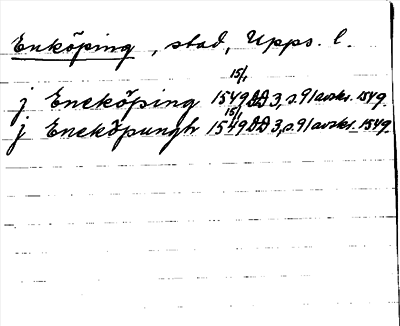 Enköping, stad, Upps. l.
j Eneköping 15/1 1549 DD 3, s. 91 avskr. 1549.
j Eneköpungh 15/1 1549 DD 3, s. 91 avskr. 1549.